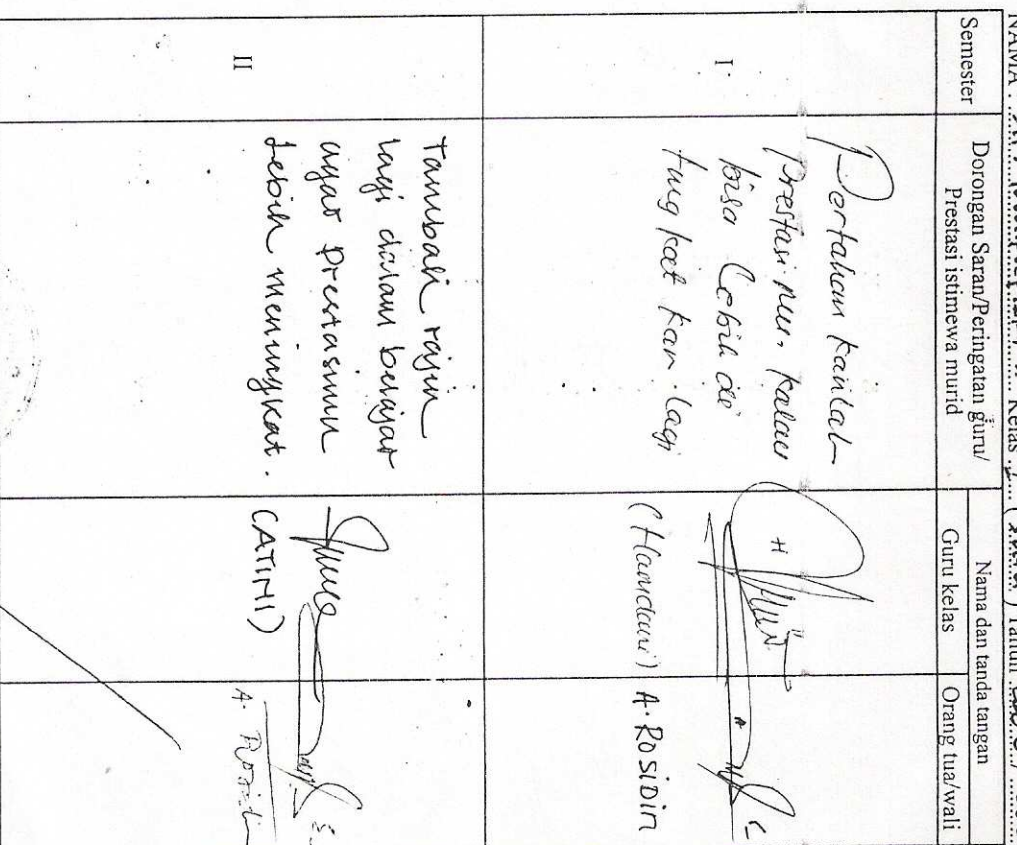 NAMA : Kelas Tahun
Semester
Dorongan Saran/Peringatan guru/
Prestasi istimewa murid
Nama dan tanda tangan
Guru kelas
Orang tua/wali
I
Pertahan kanlah
prestasi mu. kalau
bisa Lebih di
tingkat kan lagi
(Hamdani)
A. ROSIDIN
II
Tambah rajin
lagi dalam belajar
agar Prestasimu
Lebih meningkat.
CATINI)
A. Rosidin